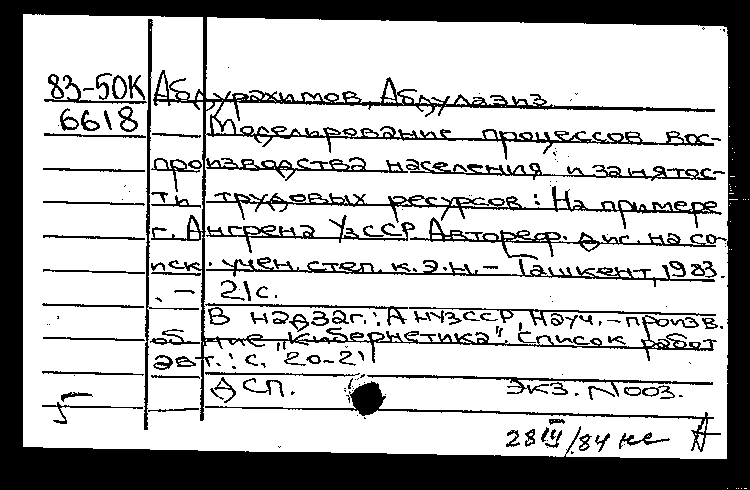 83-50К Абдурахимов, Абдулазиз
6618 Моделирование процессов вос-
производства населения и занятос-
ти трудовых ресурсов: На примере
г. Ангрена УзССР Автореф. дис. на со-
иск. учен. степ. к.э.н. - Ташкент, 1983.
. - 21 с.
В надзаг.: АНУзССР, Науч.-произв.
об-ние „Кибернетика". Список работ
авт.: с. 20-21
ДСП. Экз. N 003.
5
28 III/84 нс А